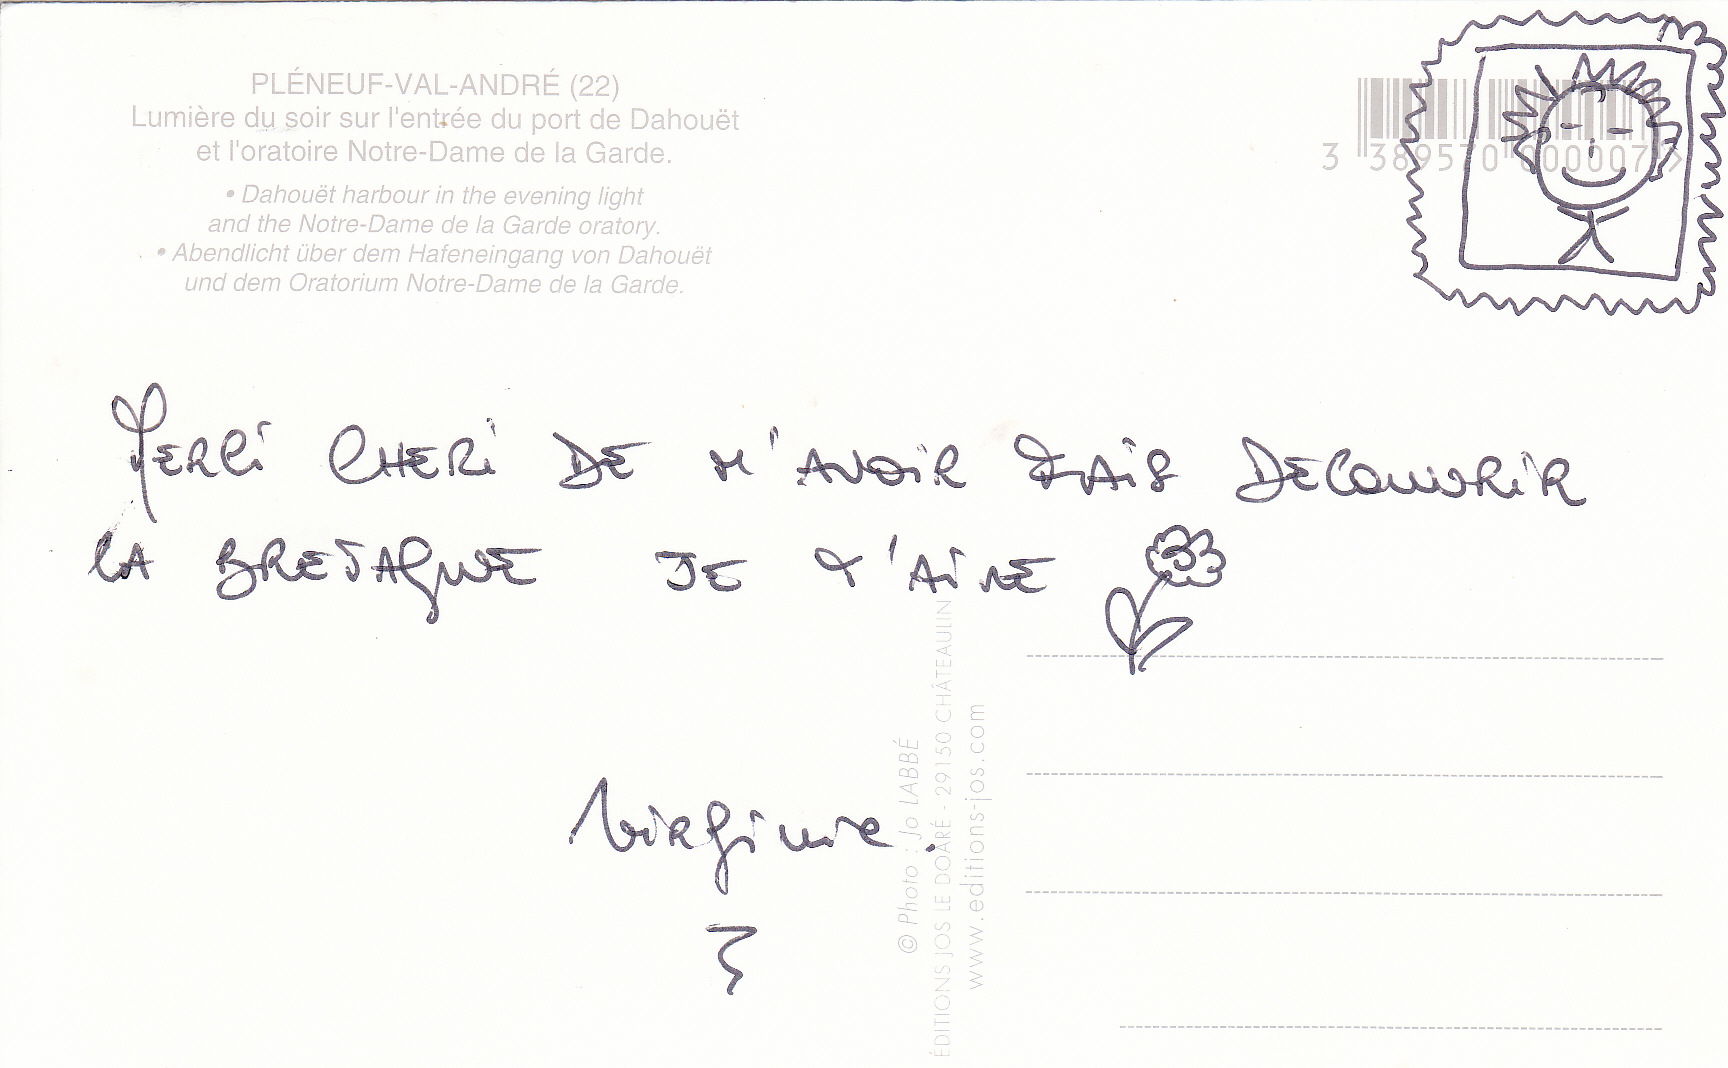 PLÉNEUF-VAL-ANDRÉ (22)
Lumière du soir sur l'entrée du port de Dahouët
et l'oratoire Notre-Dame de la Garde.
• Dahouët harbour in the evening light
and the Notre-Dame de la Garde oratory.
• Abendlicht über dem Hafeneingang von Dahouët
und dem Oratorium Notre-Dame de la Garde.
3 389570 000007 >
MERCI CHERI DE M'AVOIR FAIS DECOUVRIR
LA BRETAGNE JE T'AIME
Virginie.
© Photo : Jo LABBÉ
ÉDITIONS JOS LE DOARÉ - 29150 CHÂTEAULIN
www.editions-jos.com